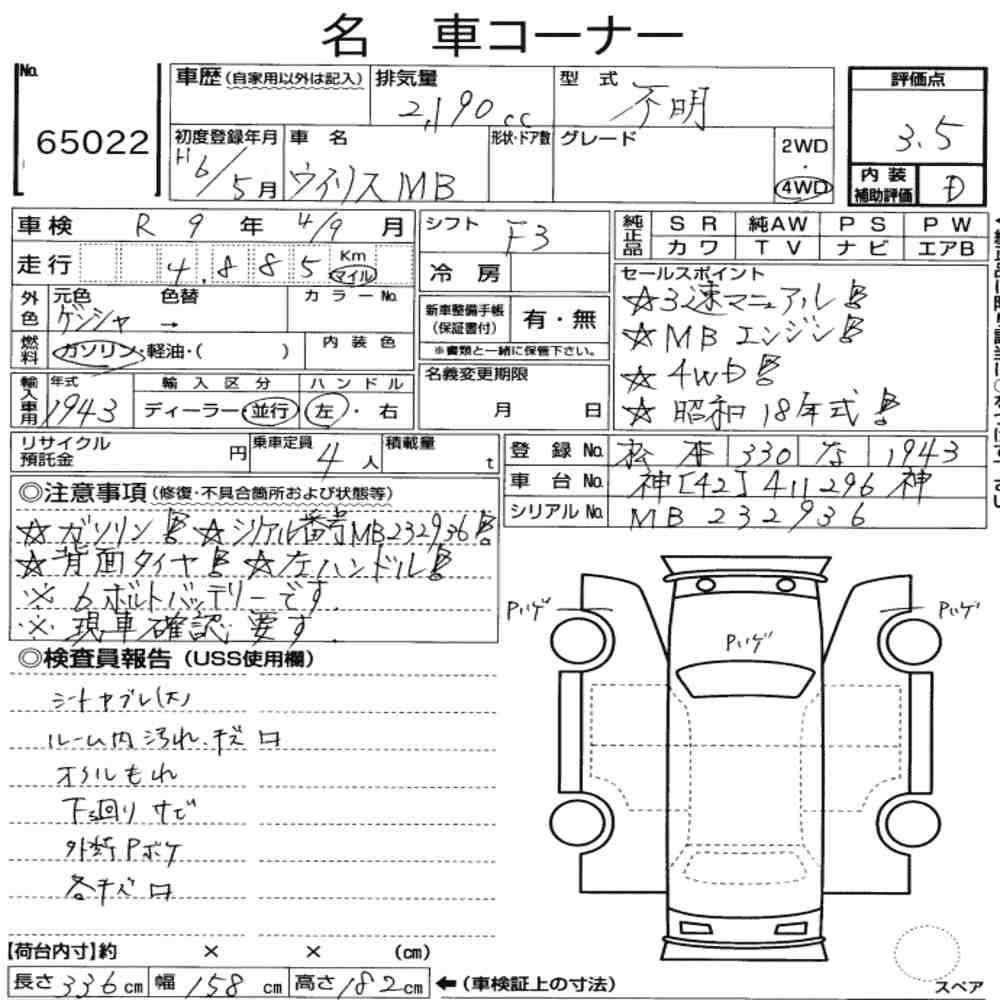 名 車コーナー
No. 65022
車歴(自家用以外は記入) 排気量 2,190cc 型式 不明 評価点 3.5
初度登録年月 H6/5月 車名 ウイリスMB 形状・ドア数 グレード 2WD・4WD 内装補助評価 D
車検 R 9 年 4/9 月 シフト F3 純正品 SR 純AW PS PW
カワ TV ナビ エアB
走行 4,885 Km マイル 冷房
外色 元色 ゲンシャ → 色替 カラーNo. 新車整備手帳(保証書付) 有・無
※書類と一緒に保管下さい。
燃料 ガソリン・軽油・( ) 内装色
輸入車用 年式 1943 輸入区分 ディーラー・並行 ハンドル 左・右 名義変更期限 月 日
セールスポイント
☆3速マニュアル
☆MBエンジン
☆4WD
☆昭和18年式
リサイクル預託金 円 乗車定員 4人 積載量 t
登録No. 松本 330 な 1943
車台No. 神[42]411296神
シリアルNo. MB 232936
◎注意事項(修復・不具合箇所および状態等)
☆ガソリン ☆シリアル番号MB232936
☆背面タイヤ ☆左ハンドル
※ 6ボルトバッテリーです.
※ 現車確認要す.
◎検査員報告(USS使用欄)
シートヤブレ(大)
ルーム内汚れ、キズ
オイルもれ
下回りサビ
外板Pボケ
各キズ
Pハゲ
Pハゲ
Pハゲ
【荷台内寸】約 × × (cm)
長さ 336cm 幅 158cm 高さ 182cm ←(車検証上の寸法)
スペア